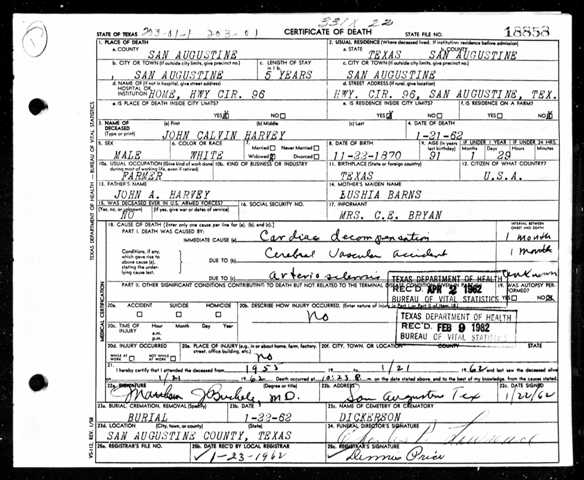 STATE OF TEXAS 203-01-1 203-01 CERTIFICATE OF DEATH STATE FILE NO. 18858
1. PLACE OF DEATH
a. COUNTY SAN AUGUSTINE
2. USUAL RESIDENCE (Where deceased lived. If institution: residence before admission)
a. STATE TEXAS b. COUNTY SAN AUGUSTINE
b. CITY OR TOWN (If outside city limits, give precinct no.) SAN AUGUSTINE
c. LENGTH OF STAY 5 YEARS
c. CITY OR TOWN (If outside city limits, give precinct no.) SAN AUGUSTINE
d. NAME OF (If not in hospital, give street address) HOSPITAL OR INSTITUTION HOME, HWY CIR. 96
d. STREET ADDRESS (If rural, give location) HWY. CIR. 96, SAN AUGUSTINE, TEX.
e. IS PLACE OF DEATH INSIDE CITY LIMITS? YES NO
e. IS RESIDENCE INSIDE CITY LIMITS? YES NO
f. IS RESIDENCE ON A FARM? YES NO
3. NAME OF DECEASED (Type or print) (a) First (b) Middle (c) Last JOHN CALVIN HARVEY
4. DATE OF DEATH 1-21-62
5. SEX MALE
6. COLOR OR RACE WHITE
7. Married Never Married Widowed Divorced
8. DATE OF BIRTH 11-22-1870
9. AGE (In years last birthday) 91
IF UNDER 1 YEAR 1 29
10a. USUAL OCCUPATION (Give kind of work done during most of working life, even if retired) FARMER
10b. KIND OF BUSINESS OR INDUSTRY
11. BIRTHPLACE (State or foreign country) TEXAS
12. CITIZEN OF WHAT COUNTRY? U.S.A.
13. FATHER'S NAME JOHN A. HARVEY
14. MOTHER'S MAIDEN NAME LUSHIA BARNS
15. WAS DECEASED EVER IN U.S. ARMED FORCES? (Yes, no, or unknown) (If yes, give war or dates of service) NO
16. SOCIAL SECURITY NO.
17. INFORMANT MRS. C.E. BRYAN
18. CAUSE OF DEATH (Enter only one cause per line for (a), (b), and (c).)
PART I. DEATH WAS CAUSED BY:
INTERVAL BETWEEN ONSET AND DEATH
IMMEDIATE CAUSE (a) Cardiac decompensation 1 month
Conditions, if any, which gave rise to above cause (a), stating the underlying cause last.
DUE TO (b) Cerebral Vascular accident 1 month
DUE TO (c) arteriosclerosis unknown
PART II. OTHER SIGNIFICANT CONDITIONS CONTRIBUTING TO DEATH BUT NOT RELATED TO THE TERMINAL DISEASE
19. WAS AUTOPSY PERFORMED? YES NO
TEXAS DEPARTMENT OF HEALTH
REC'D APR 2 1962
BUREAU OF VITAL STATISTICS
20a. ACCIDENT SUICIDE HOMICIDE
20b. DESCRIBE HOW INJURY OCCURRED. No
TEXAS DEPARTMENT OF HEALTH
REC'D. FEB 9 1962
BUREAU OF VITAL STATISTICS
20c. TIME OF INJURY Hour Month Day Year a.m. p.m.
20d. INJURY OCCURRED WHILE AT WORK NOT WHILE AT WORK
20e. PLACE OF INJURY (e.g., in or about home, farm, factory, street, office building, etc.) No
20f. CITY, TOWN, OR LOCATION COUNTY STATE
21. I hereby certify that I attended the deceased from 1955 to 1/21 1962 and last saw the deceased alive on
1/21 1962 Death occurred at 10:23 P. m. on the date stated above; and to the best of my knowledge, from the causes stated.
22a. SIGNATURE (Degree or title) M.D.
22b. ADDRESS San Augustine Tex
22c. DATE SIGNED 1/22/62
23a. BURIAL, CREMATION, REMOVAL (Specify) BURIAL
23b. DATE 1-22-62
23c. NAME OF CEMETERY OR CREMATORY DICKERSON
23d. LOCATION (City, town, or county) (State) SAN AUGUSTINE COUNTY, TEXAS
24. FUNERAL DIRECTOR'S SIGNATURE
25a. REGISTRAR'S FILE NO.
25b. DATE REC'D BY LOCAL REGISTRAR 1-23-1962
25c. REGISTRAR'S SIGNATURE Price
TEXAS DEPARTMENT OF HEALTH — BUREAU OF VITAL STATISTICS
MEDICAL CERTIFICATION